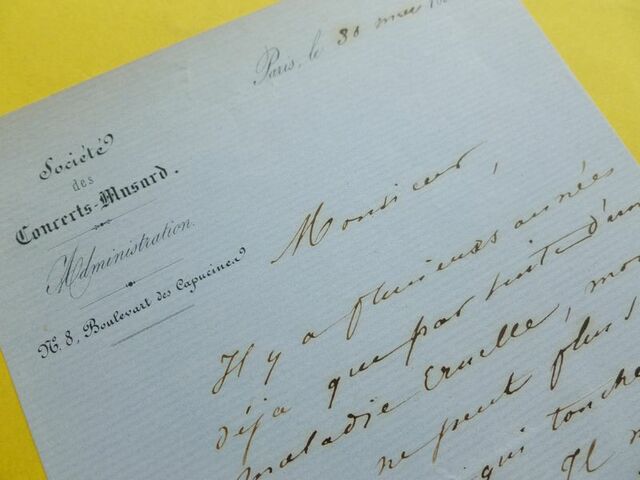 Paris, le 30 mai
Société
des
Concerts-Musard.
Administration.
N. 8, Boulevart des Capucines
Monsieur,
Il y a plusieurs années
déja que par suite d'un
maladie cruelle, mo
ne peut plus
qui touche
Il